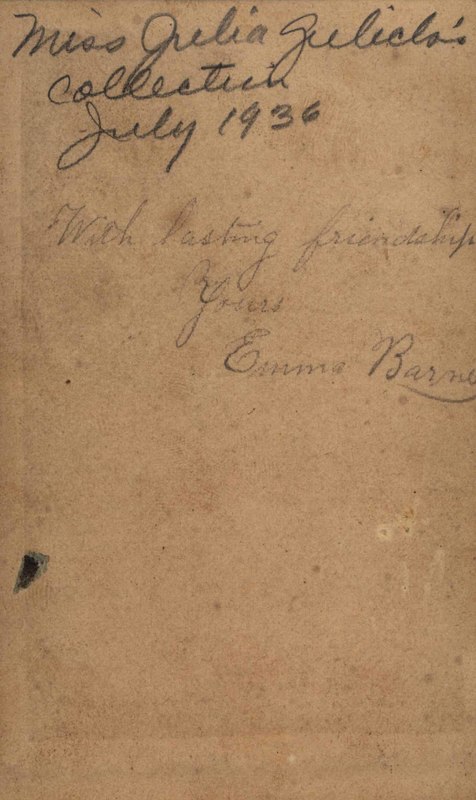 Miss Julia Gulick's
collection
July 1936
With lasting friendship
Yours
Emma Barne